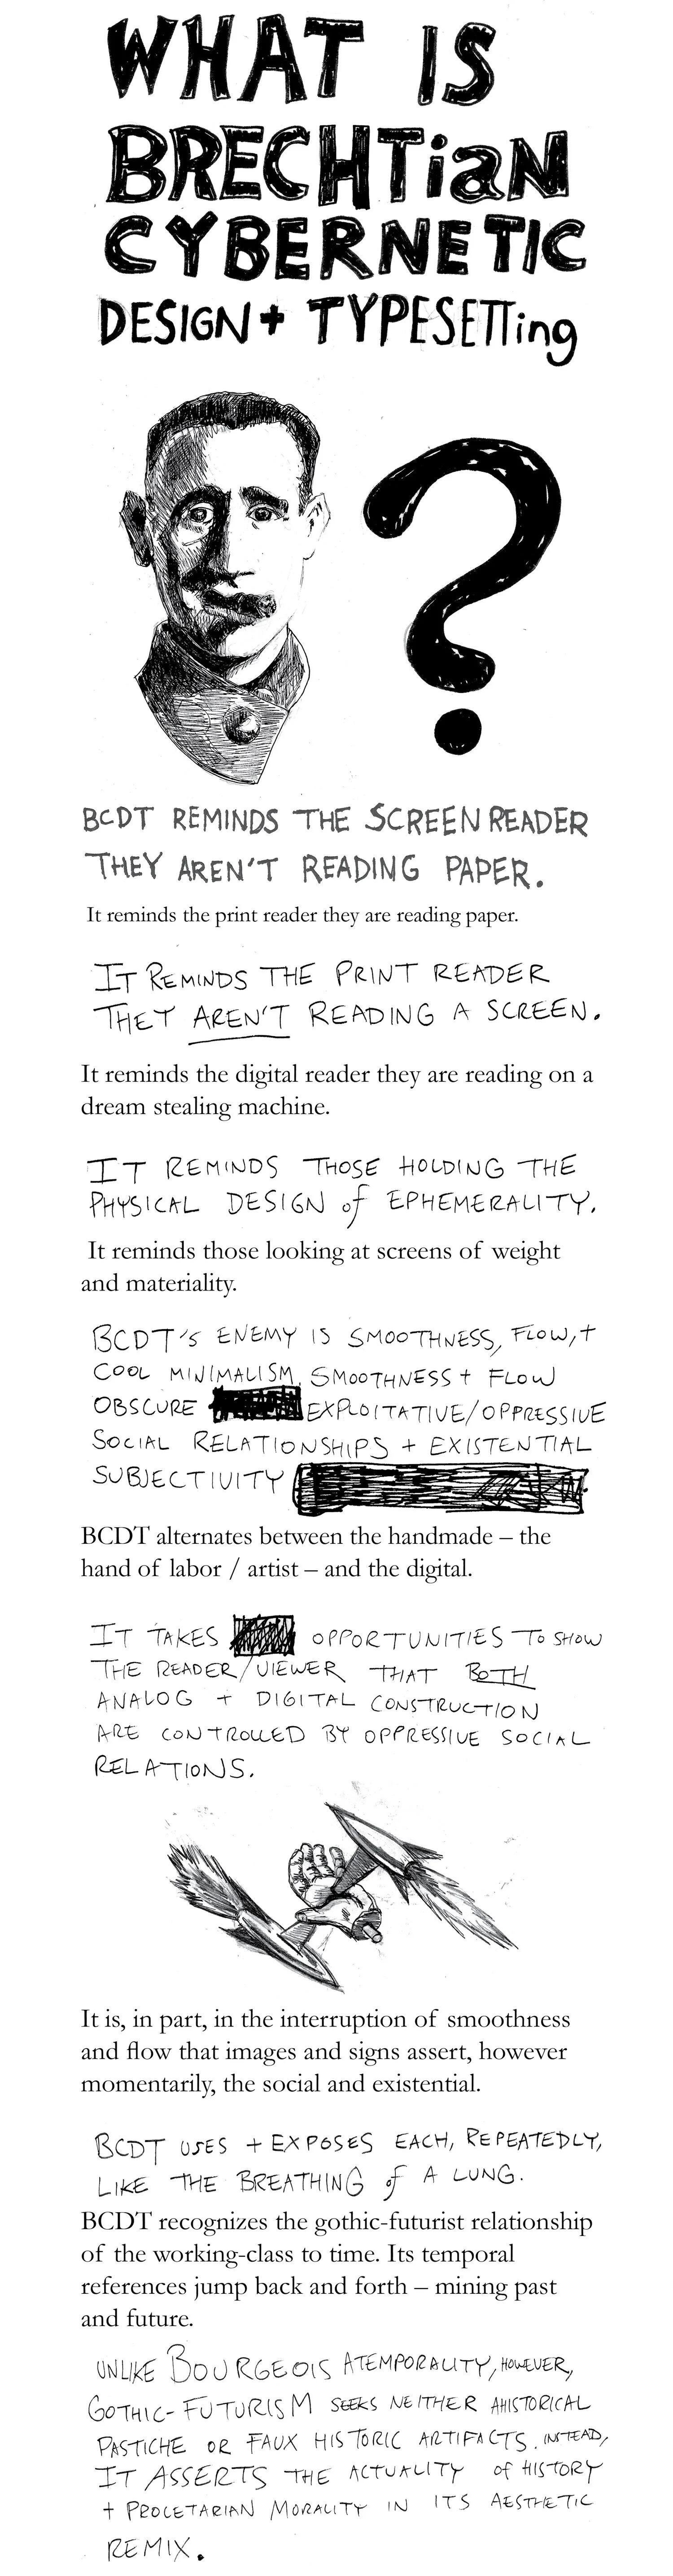 WHAT IS
BRECHTiaN
CYBERNETIC
DESIGN + TYPESETTing
?
BCDT REMINDS THE SCREEN READER
THEY AREN'T READING PAPER.
It reminds the print reader they are reading paper.
IT REMINDS THE PRINT READER
THEY AREN'T READING A SCREEN.
It reminds the digital reader they are reading on a
dream stealing machine.
IT REMINDS THOSE HOLDING THE
PHYSICAL DESIGN of EPHEMERALITY.
It reminds those looking at screens of weight
and materiality.
BCDT'S ENEMY IS SMOOTHNESS, FLOW, +
COOL MINIMALISM. SMOOTHNESS + FLOW
OBSCURE EXPLOITATIVE/OPPRESSIVE
SOCIAL RELATIONSHIPS + EXISTENTIAL
SUBJECTIVITY
BCDT alternates between the handmade – the
hand of labor / artist – and the digital.
IT TAKES OPPORTUNITIES TO SHOW
THE READER/VIEWER THAT BOTH
ANALOG + DIGITAL CONSTRUCTION
ARE CONTROLLED BY OPPRESSIVE SOCIAL
RELATIONS.
It is, in part, in the interruption of smoothness
and flow that images and signs assert, however
momentarily, the social and existential.
BCDT USES + EXPOSES EACH, REPEATEDLY,
LIKE THE BREATHING of A LUNG.
BCDT recognizes the gothic-futurist relationship
of the working-class to time. Its temporal
references jump back and forth – mining past
and future.
UNLIKE BOURGEOIS ATEMPORALITY, HOWEVER,
GOTHIC-FUTURISM SEEKS NEITHER AHISTORICAL
PASTICHE OR FAUX HISTORIC ARTIFACTS. INSTEAD,
IT ASSERTS THE ACTUALITY of HISTORY
+ PROLETARIAN MORALITY IN ITS AESTHETIC
REMIX.